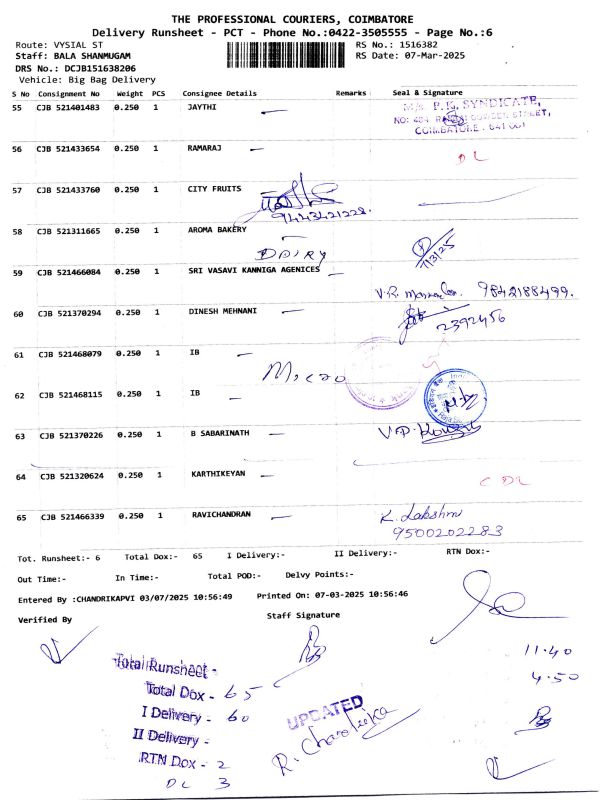 THE PROFESSIONAL COURIERS, COIMBATORE
Delivery Runsheet - PCT - Phone No.:0422-3505555 - Page No.:6
Route: VYSIAL ST RS No.: 1516382
Staff: BALA SHANMUGAM RS Date: 07-Mar-2025
DRS No.: DCJB151638206
Vehicle: Big Bag Delivery
S No Consignment No Weight PCS Consignee Details Remarks Seal & Signature
55 CJB 521401483 0.250 1 JAYTHI
M/s P.K. SYNDICATE,
STREET,
COIMBATORE - 641 001
56 CJB 521433654 0.250 1 RAMARAJ
DL
57 CJB 521433760 0.250 1 CITY FRUITS
9443421228.
58 CJB 521311665 0.250 1 AROMA BAKERY
DAIRY 7/3/25
59 CJB 521466084 0.250 1 SRI VASAVI KANNIGA AGENICES
V.R. 9842188499.
60 CJB 521370294 0.250 1 DINESH MEHNANI
2392456
61 CJB 521468079 0.250 1 IB
Micro
62 CJB 521468115 0.250 1 IB
63 CJB 521370226 0.250 1 B SABARINATH
64 CJB 521320624 0.250 1 KARTHIKEYAN
C DL
65 CJB 521466339 0.250 1 RAVICHANDRAN K. Lakshmi
9500202283
Tot. Runsheet:- 6 Total Dox:- 65 I Delivery:- II Delivery:- RTN Dox:-
Out Time:- In Time:- Total POD:- Delvy Points:-
Entered By :CHANDRIKAPVI 03/07/2025 10:56:49 Printed On: 07-03-2025 10:56:46
Verified By Staff Signature
11.40
Total Runsheet -
4.50
Total Dox - 65
I Delivery - 60
UPDATED
II Delivery -
RTN Dox - 2
DL 3